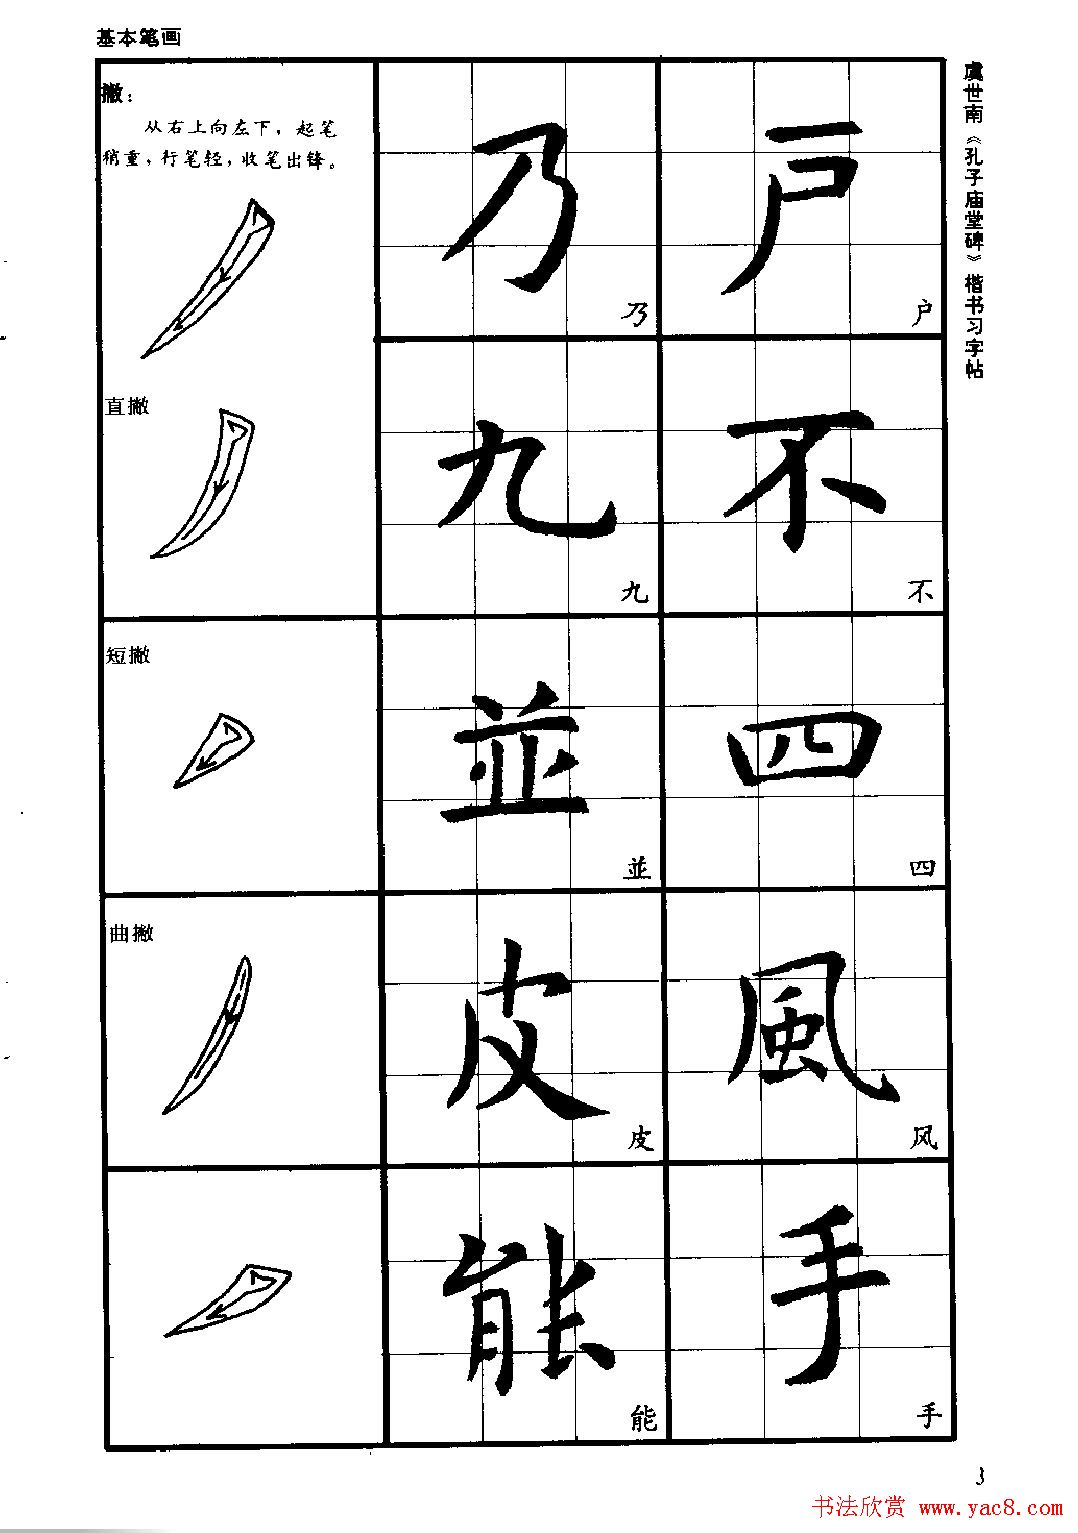 基本笔画
撇：
从右上向左下，起笔
稍重，行笔轻，收笔出锋。
乃 户
乃 户
直撇
九 不
九 不
短撇
並 四
並 四
曲撇
皮 風
皮 风
能 手
能 手
虞世南《孔子庙堂碑》楷书习字帖
3
书法欣赏 www.yac8.com